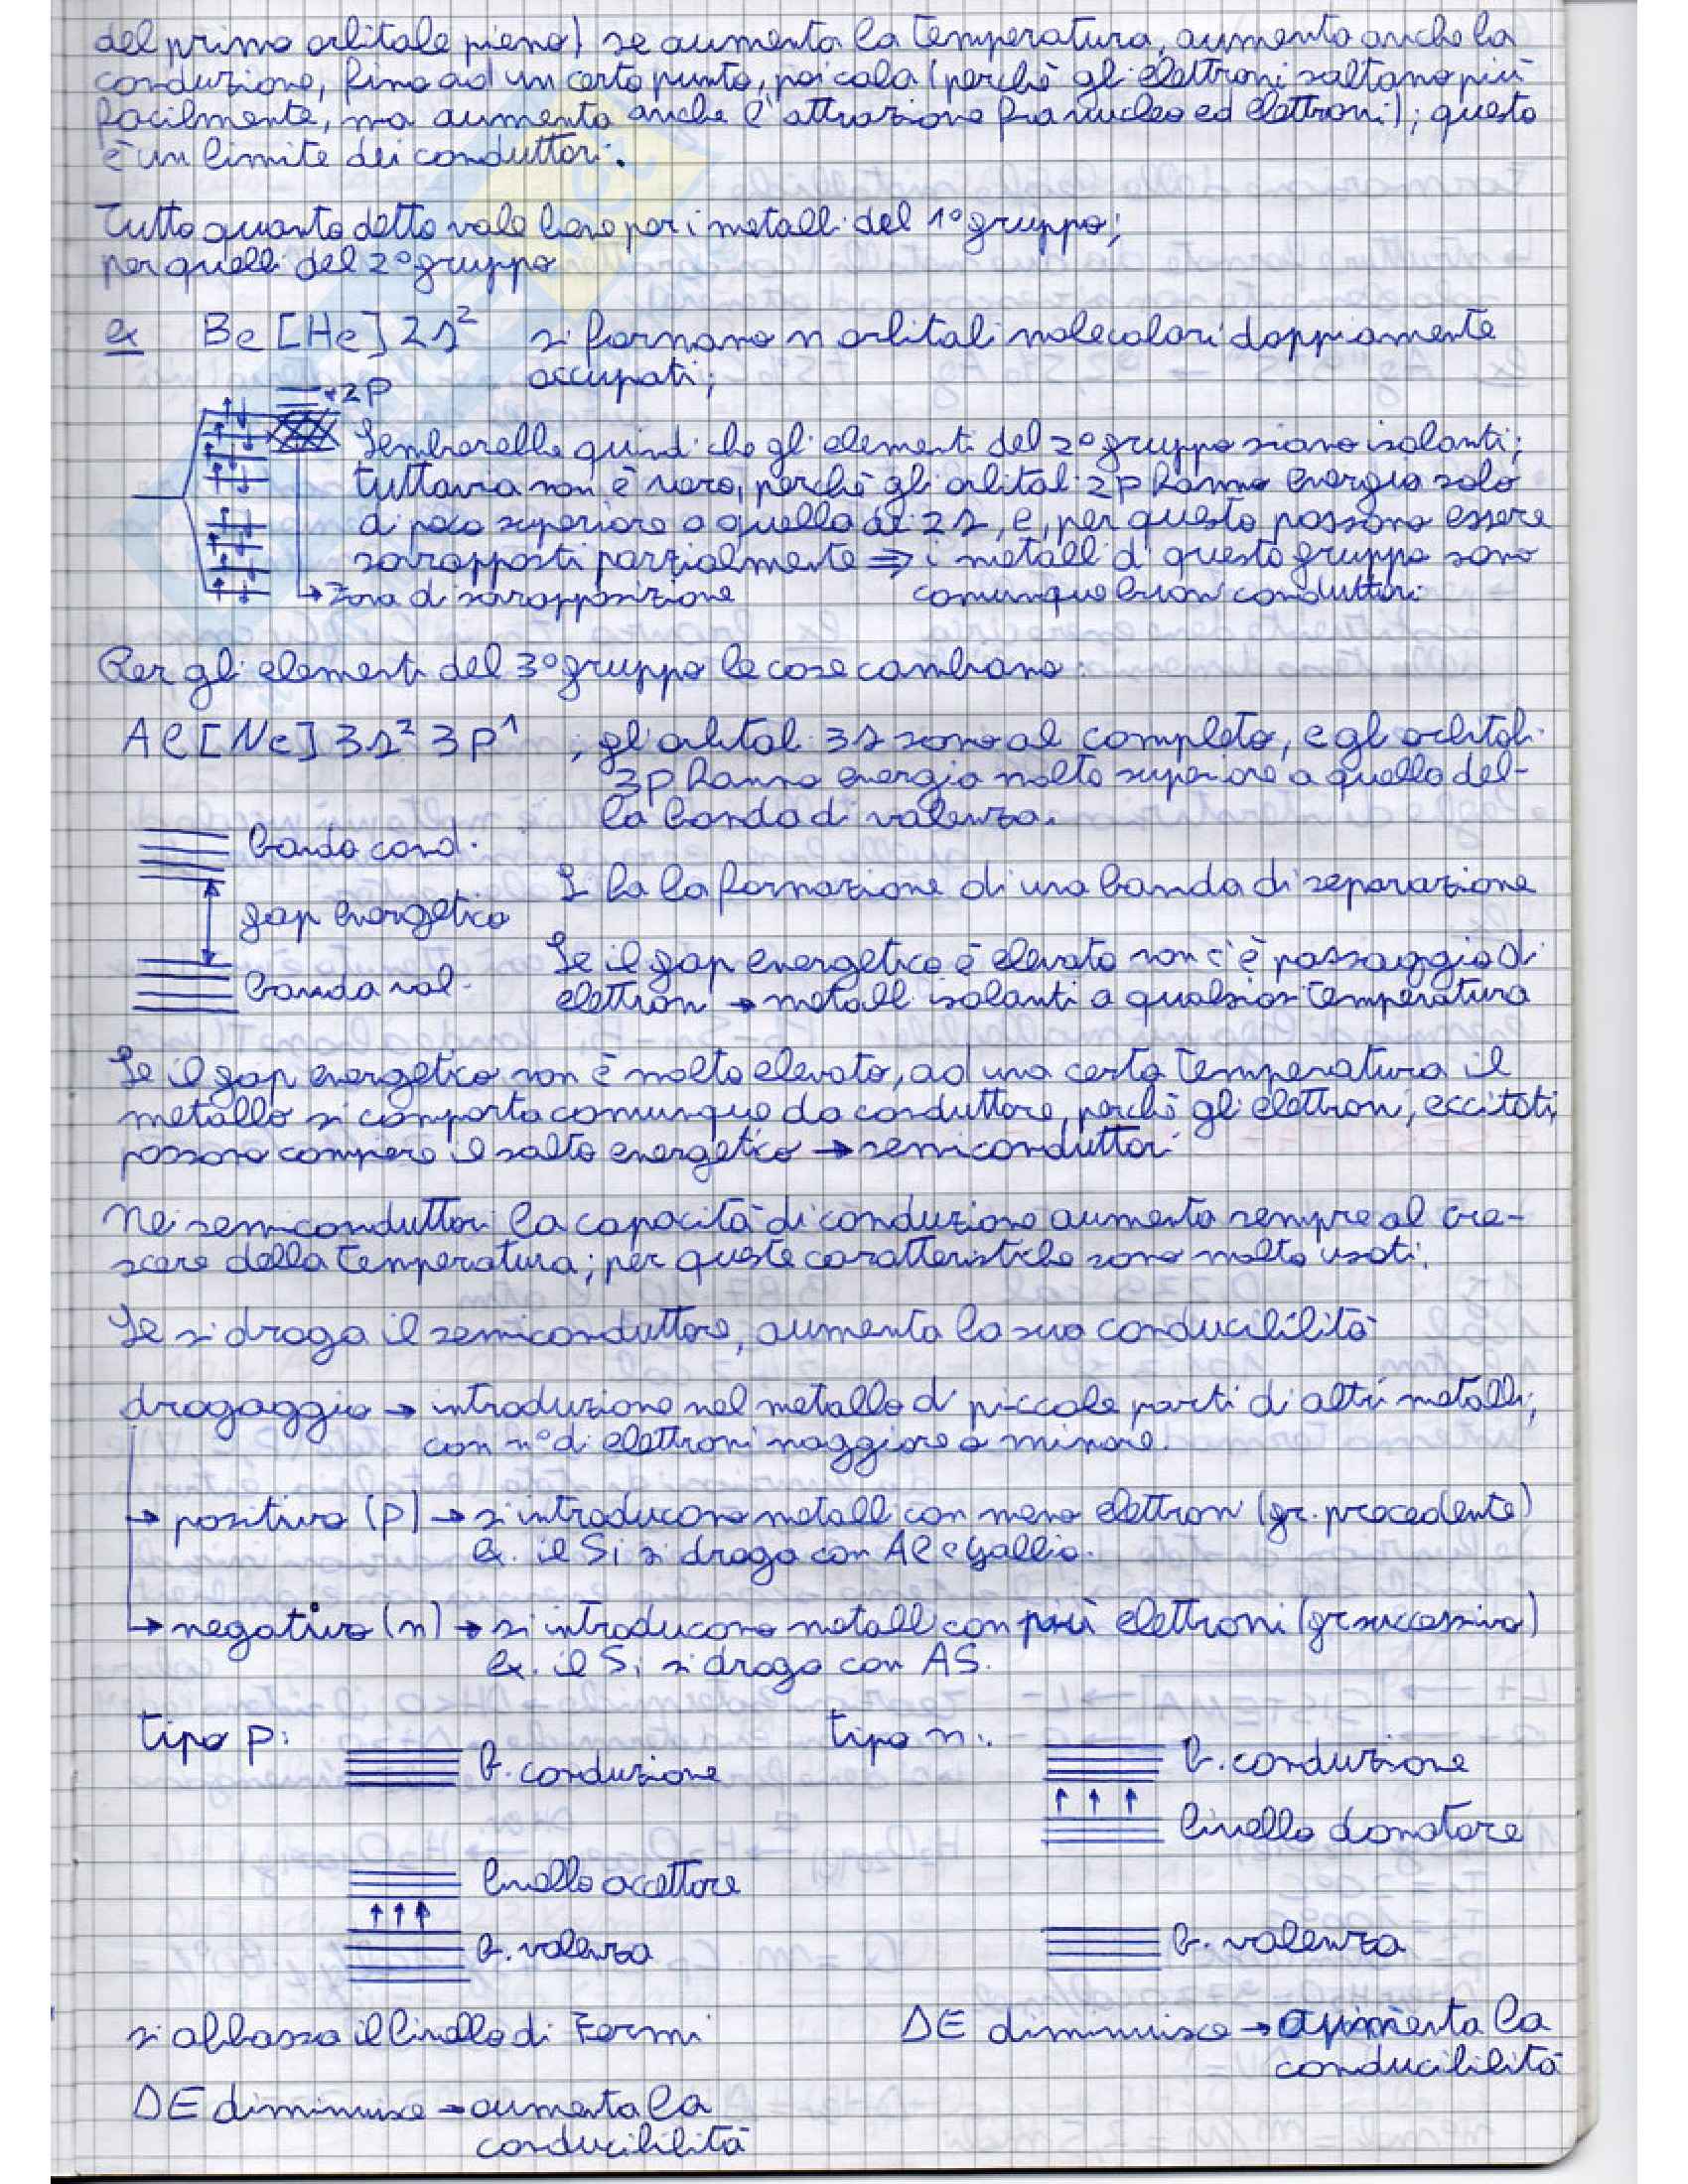 del primo orbitale pieno) se aumenta la temperatura, aumenta anche la
conduzione, fino ad un certo punto, poi cala (perchè gli elettroni saltano più
facilmente, ma aumenta anche l'attrazione fra nucleo ed elettroni); questo
è un limite dei conduttori.
Tutto quanto detto vale bene per i metalli del 1° gruppo;
per quelli del 2° gruppo
ex Be [He] 2s² si formano n orbitali molecolari doppiamente
occupati;
2P
Sembrerebbe quindi che gli elementi del 2° gruppo siano isolanti;
tuttavia non è vero, perchè gli orbitali 2p hanno energia solo
di poco superiore a quella dei 2s, e, per questo possono essere
sovrapposti parzialmente ⇒ i metalli di questo gruppo sono
→ Zona di sovrapposizione comunque buoni conduttori
Per gli elementi del 3° gruppo le cose cambiano:
Al [Ne] 3s² 3p¹ ; gli orbitali 3s sono al completo, e gli orbitali
3p hanno energia molto superiore a quella del-
la banda di valenza.
banda cond.
Si ha la formazione di una banda di separazione
gap energetico
Se il gap energetico è elevato non c'è passaggio di
banda val. elettroni → metalli isolanti a qualsiasi temperatura
Se il gap energetico non è molto elevato, ad una certa temperatura il
metallo si comporta comunque da conduttore, perchè gli elettroni, eccitati,
possono compiere il salto energetico → semiconduttori
Nei semiconduttori la capacità di conduzione aumenta sempre al cre-
scere della temperatura; per queste caratteristiche sono molto usati.
Se si droga il semiconduttore, aumenta la sua conducibilità
drogaggio → introduzione nel metallo di piccole parti di altri metalli,
con n° di elettroni maggiore o minore.
→ positivo (p) → si introducono metalli con meno elettroni (gr. precedente)
ex. il Si si droga con Al e Gallio.
→ negativo (n) → si introducono metalli con più elettroni (gr successivo)
ex. il Si si droga con AS.
tipo p: tipo n:.
b. conduzione b. conduzione
livello donatore
livello accettore
b. valenza b. valenza
si abbassa il livello di Fermi ΔE diminuisce → aumenta la
conducibilità
ΔE diminuisce → aumenta la
conducibilità